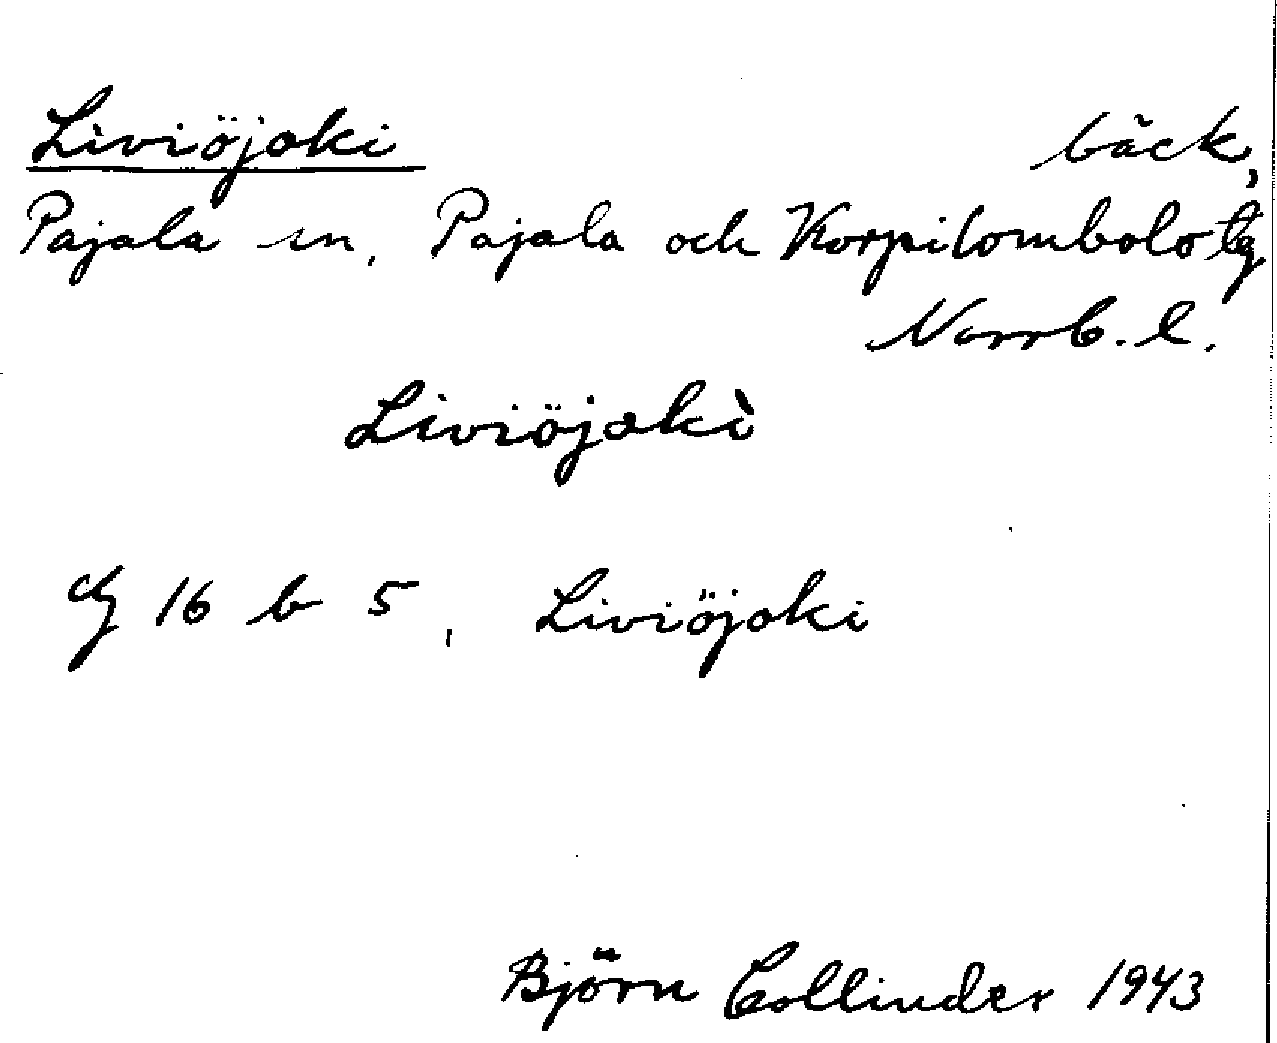 Liviöjoki bäck,
Pajala sn, Pajala och Korpilombolo tg
Norrb. l.
Liviöjoki
16 b 5, Liviöjoki
Björn Collinder 1943